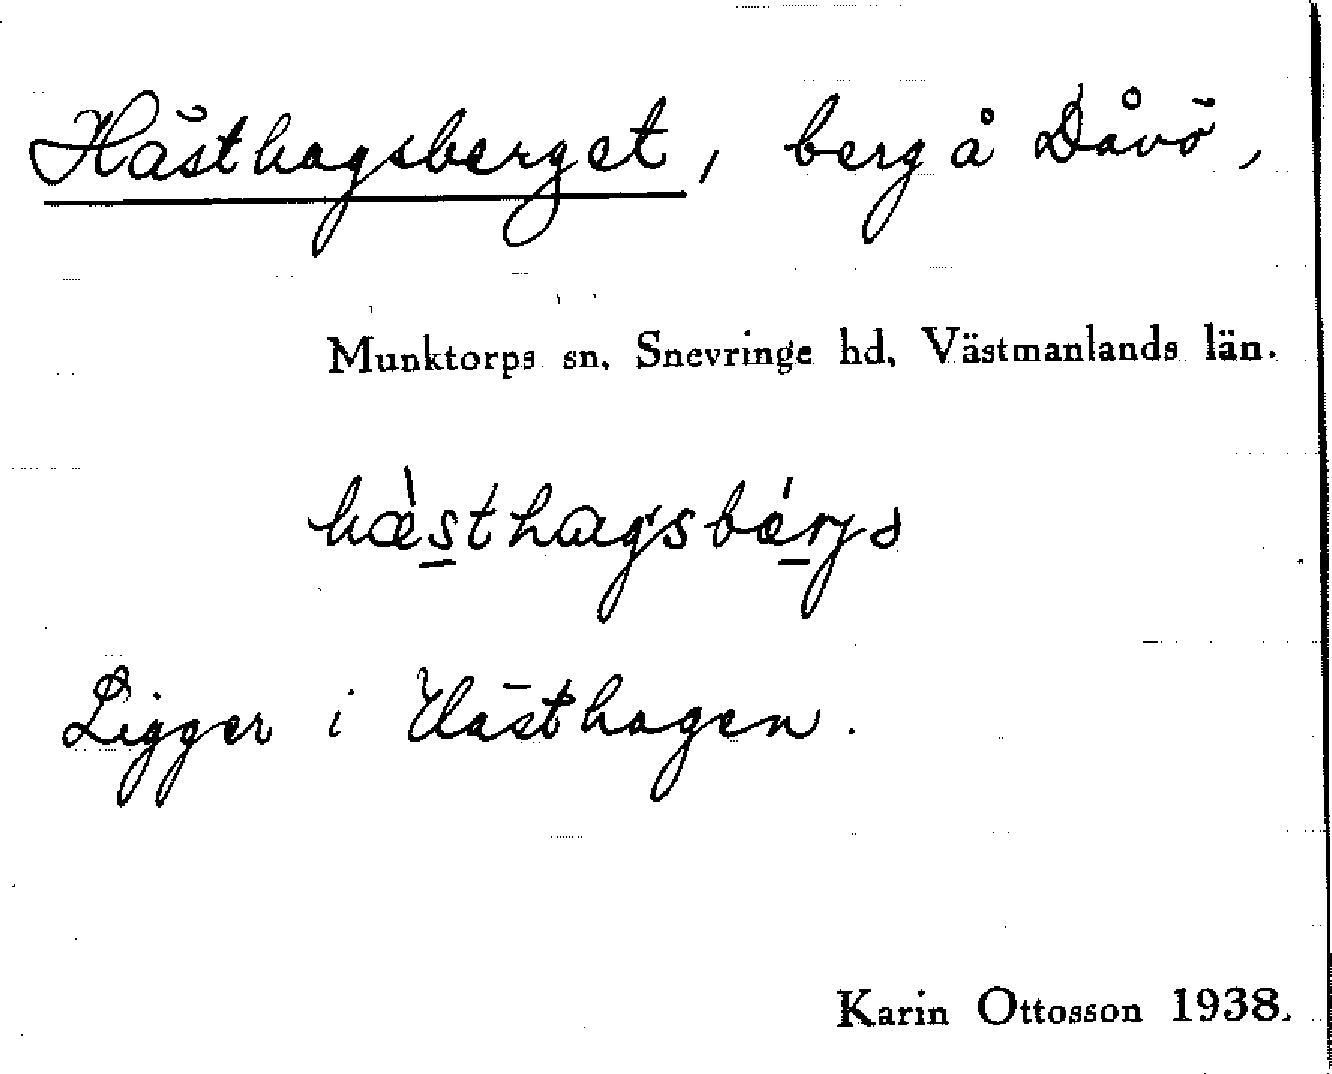 Hästhagsberget, berg å Dåvö,
Munktorps sn, Snevringe hd, Västmanlands län.
hæ̀sthagsbǽrjə
Ligger i Hästhagen.
Karin Ottosson 1938.